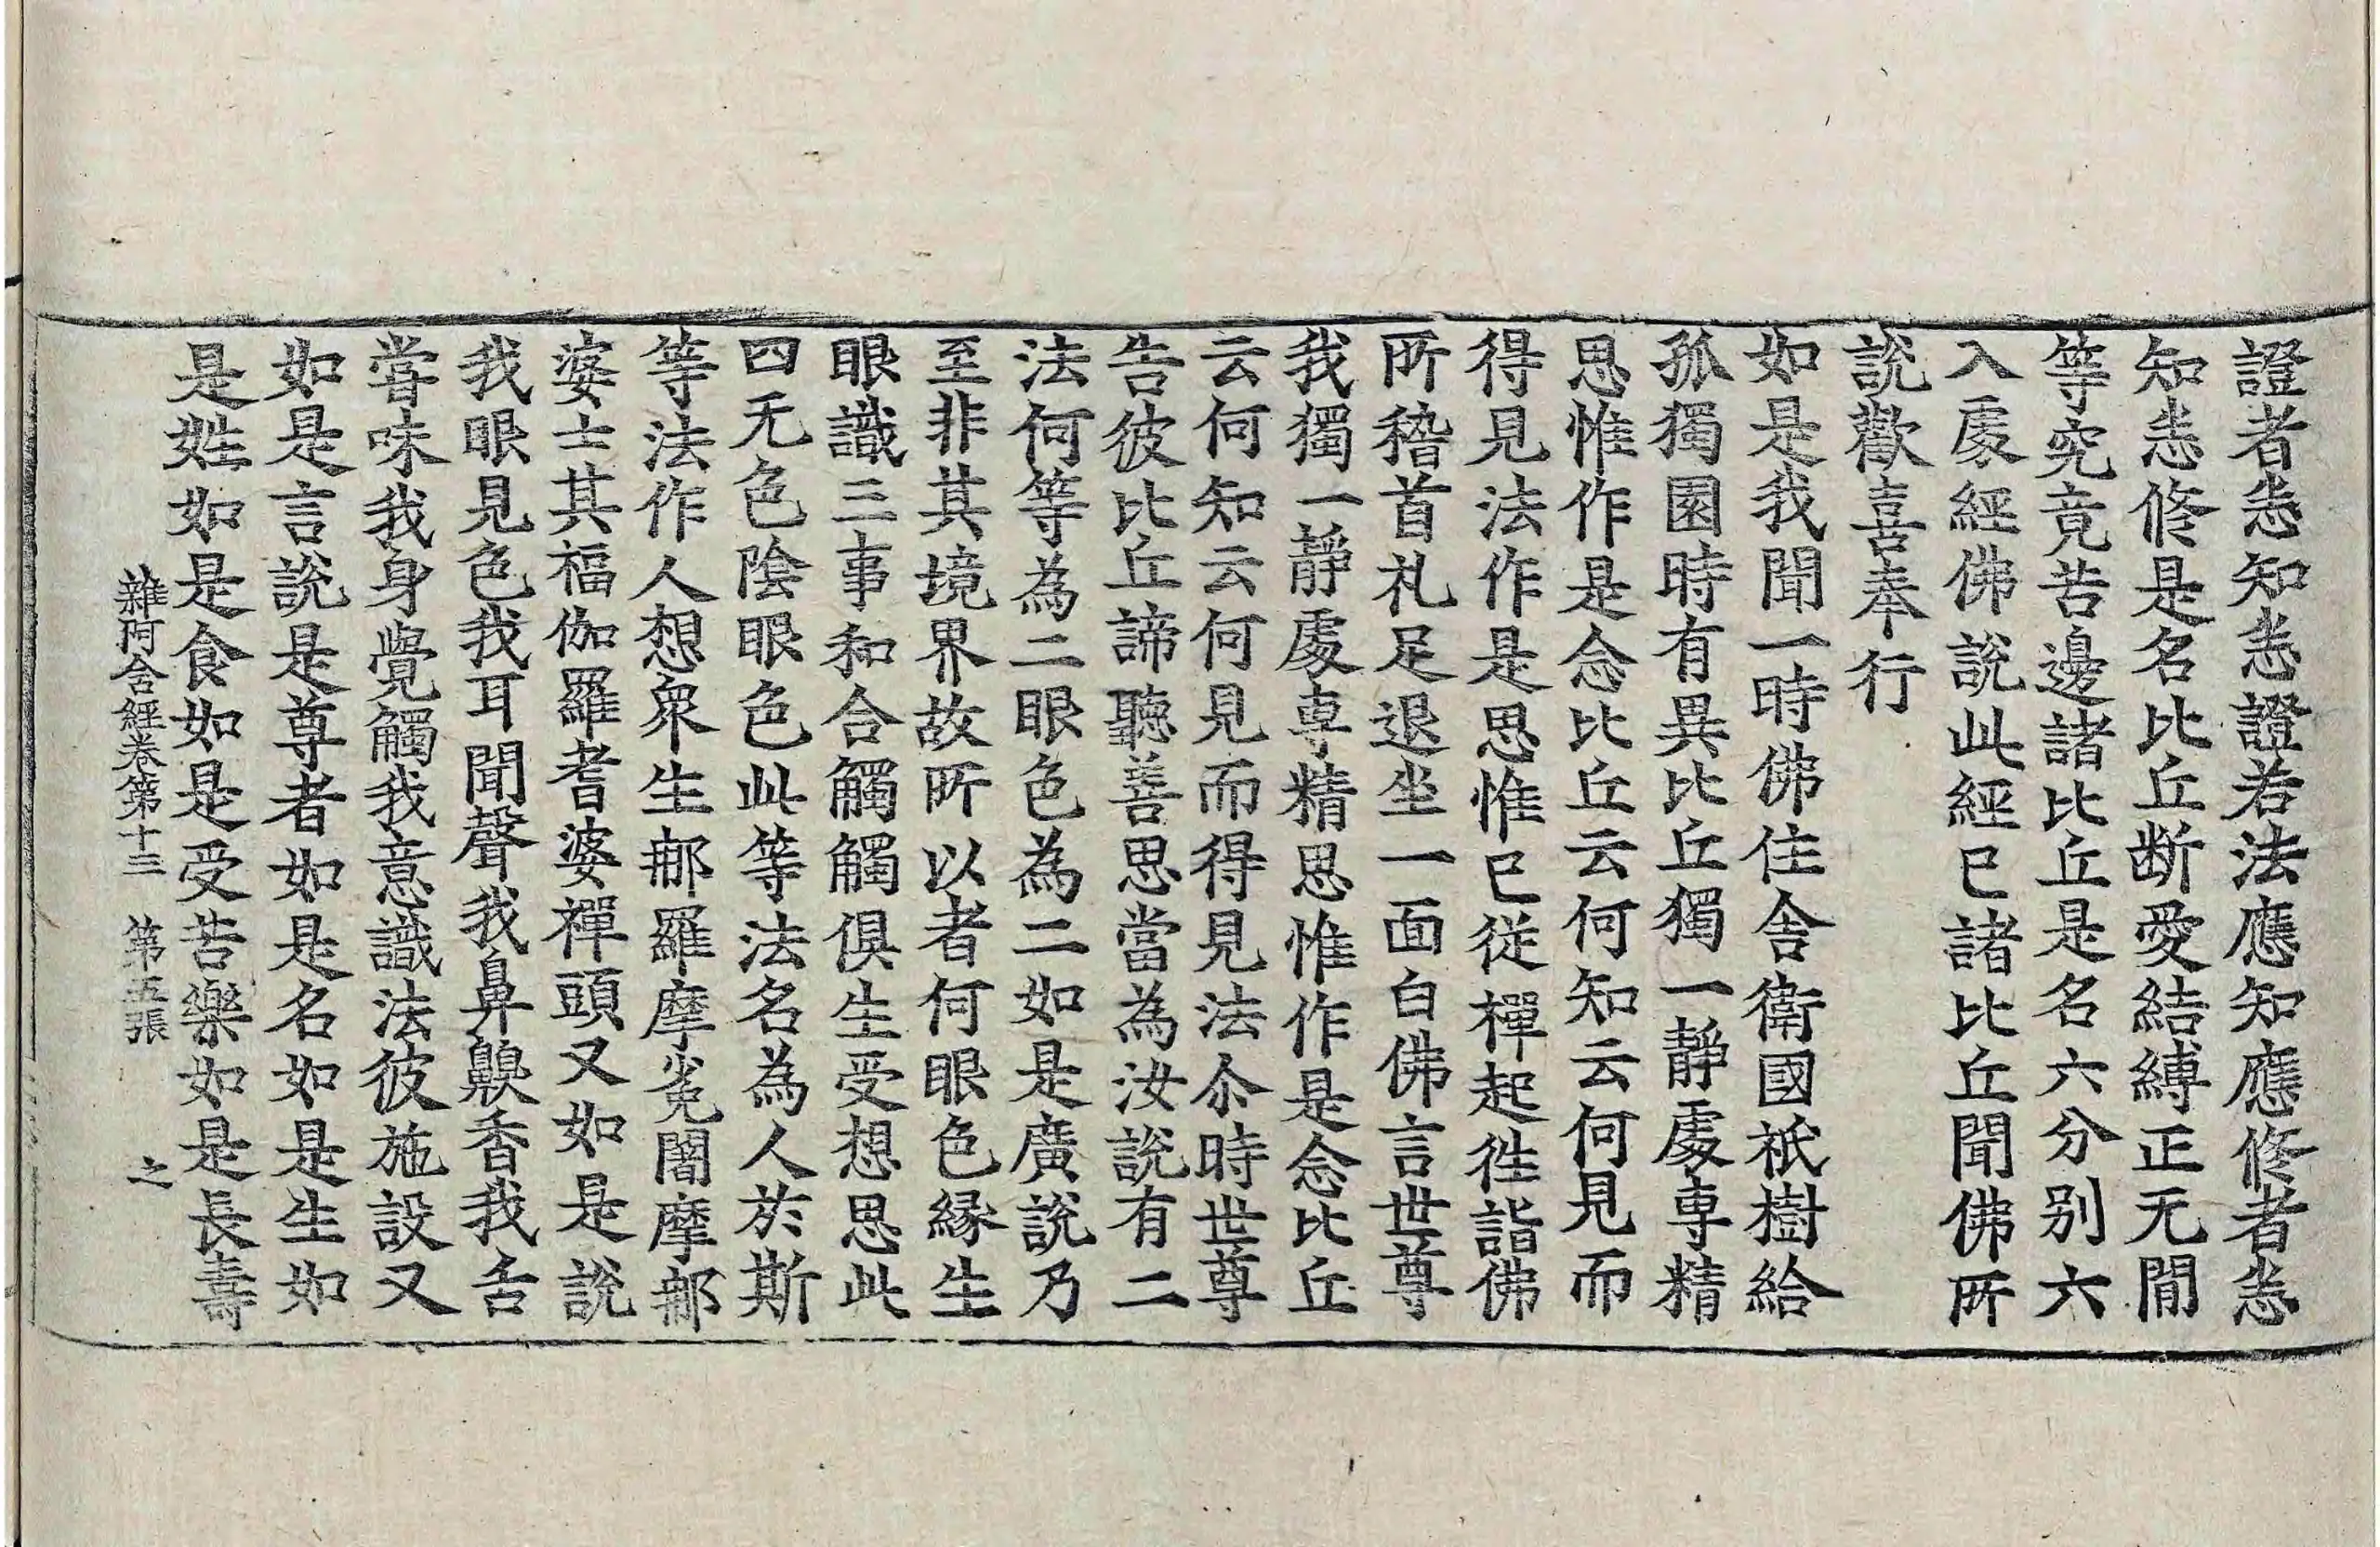 證者悉知悉證若法應知應修者悉
知悉修是名比丘断愛結縛正无閒
等究竟苦邊諸比丘是名六分别六
入處經佛說此經已諸比丘聞佛所
說歡喜奉行
如是我聞一時佛住舍衛國祇樹給
孤獨園時有異比丘獨一靜處專精
思惟作是念比丘云何知云何見而
得見法作是思惟已從禪起往詣佛
所稽首礼足退坐一面白佛言世尊
我獨一靜處專精思惟作是念比丘
云何知云何見而得見法尒時世尊
告彼比丘諦聽善思當為汝說有二
法何等為二眼色為二如是廣說乃
至非其境界故所以者何眼色緣生
眼識三事和合觸觸俱生受想思此
四无色陰眼色此等法名為人於斯
等法作人想衆生那羅摩㝹闍摩那
婆士其福伽羅耆婆禪頭又如是說
我眼見色我耳聞聲我鼻齅香我舌
甞味我身覺觸我意識法彼施設又
如是言說是尊者如是名如是生如
是姓如是食如是受苦樂如是長壽
雜阿含經卷第十三 第五張 之